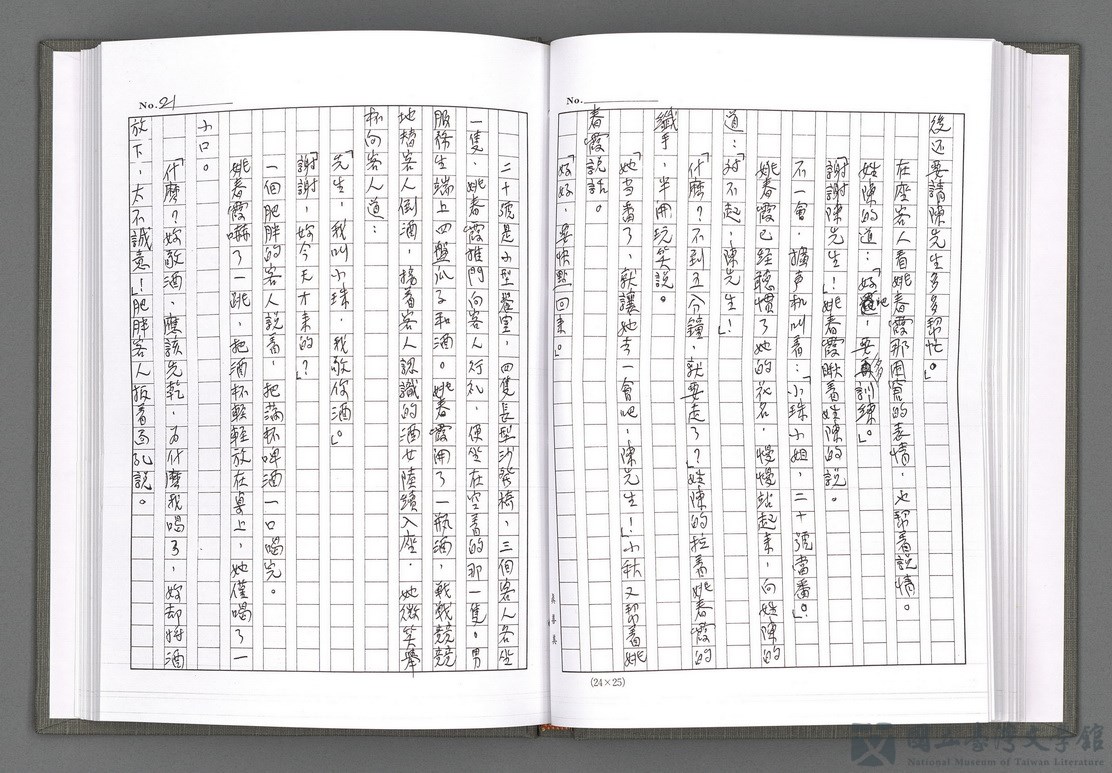 No.
後还要請陳先生多多幫忙。」
在座客人看姚春霞那困窘的表情,也幫着說情。
姓陳的道:「好吧,要多訓練。」
謝謝陳先生!姚春霞瞅着姓陳的說。
不一會,擴声机叫着:「小珠小姐,二十號當番。」
姚春霞已經聽慣了她的花名,慢慢站起來,向姓陳的
道:「对不起,陳先生!」
「什麼?不到五分鐘,就要走了?」姓陳的拉着姚春霞的
纖手,半開玩笑說。
「她当番了,就讓她去一會吧,陳先生!」小秋又幫着姚
春霞說話。
「好好,要快點回來。」
(24×25)
No. 21
二十號是小型套室,四隻長型沙發椅,三個客人各坐
一隻,姚春霞推門向客人行礼,便坐在空着的那一隻。男
服務生端上四盤瓜子和酒。姚春霞開了一瓶酒,戰戰兢兢
地替客人倒酒,接着客人認識的酒女陸續入座,她微笑舉
杯向客人道:
「先生,我叫小珠,我敬你酒。」
「謝謝,妳今天才來的?」
一個肥胖的客人說着,把滿杯啤酒一口喝完。
姚春霞嚇了一跳,把酒杯輕輕放在桌上,她僅喝了一
小口。
「什麼?妳敬酒,應該先乾,为什麼我喝了,妳却將酒
放下,太不誠意!」肥胖客人扳着面孔說。
國立臺灣文學館
National Museum of Taiwan Literature